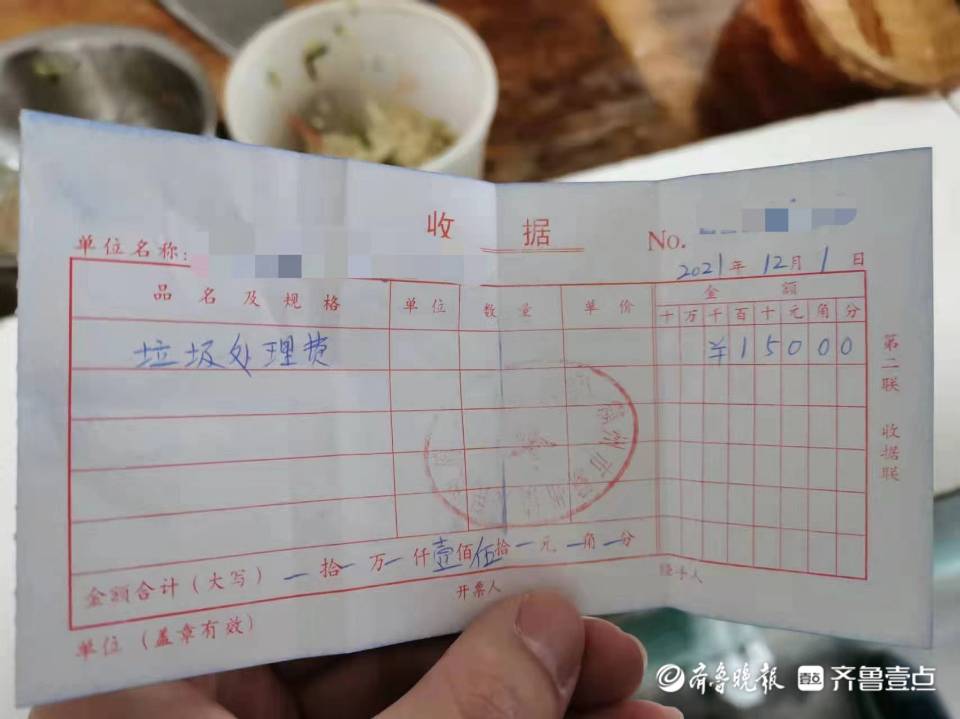 收据
单位名称:
No.
2021年12月1日
品名及规格 单位 数量 单价 金额
十 万 千 百 十 元 角 分
垃圾处理费 ¥15000
第二联 收据联
金额合计(大写) 一拾一万一仟壹佰伍拾一元一角一分
单位(盖章有效) 开票人 经手人
齐鲁晚报 齐鲁壹点